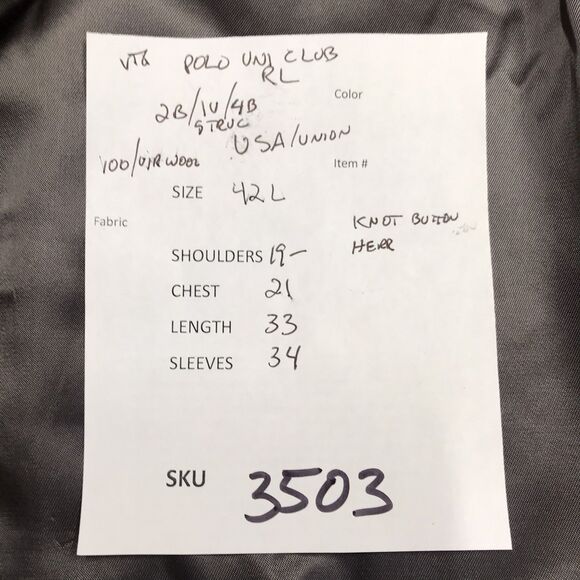 VTG POLO UNI CLUB
RL
Color
2B/1V/4B
STRUC
USA/UNION
100/VIR WOOL
Item #
SIZE 42L
Fabric
KNOT BUTTON
HERR
SHOULDERS 19-
CHEST 21
LENGTH 33
SLEEVES 34
SKU 3503